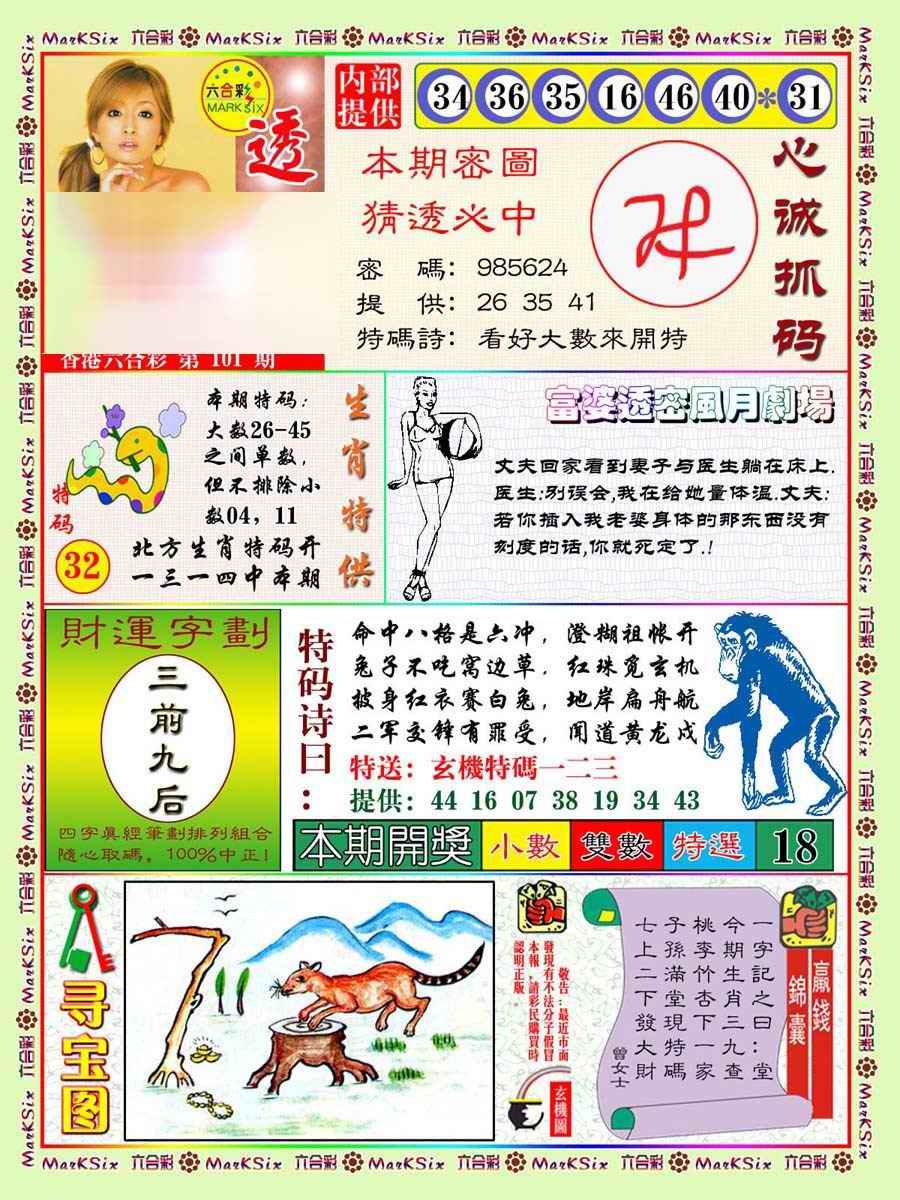 MarKSix 六合彩 MarKSix 六合彩 MarKSix 六合彩 MarKSix 六合彩 MarKSix 六合彩
六合彩
MARK SIX
透
香港六合彩 第 101 期
内部
提供
34 36 35 16 46 40 * 31
本期密圖
猜透必中
密 碼: 985624
提 供: 26 35 41
特碼詩: 看好大數來開特
心诚抓码
特码
32
本期特码:
大数26-45
之间单数,
但不排除小
数04, 11
北方生肖特码开
一三一四中本期
生肖特供
富婆透密風月劇場
丈夫回家看到妻子与医生躺在床上.
医生:别误会,我在给她量体温.丈夫:
若你插入我老婆身体的那东西没有
刻度的话,你就死定了.!
財運字劃
三前九后
四字眞經筆劃排列組合
隨心取碼。100%中正!
特码诗曰:
命中八格是六冲, 澄糊祖帐开
兔子不吃窝边草, 红珠觅玄机
披身红衣赛白兔, 地岸扁舟航
二军交锋有罪受, 闻道黄龙戍
特送: 玄機特碼一二三
提供: 44 16 07 38 19 34 43
本期開獎 小數 雙數 特選 18
寻宝图
敬告:最近市面
發現有不法分子假冒
本報,請彩民購買時
認明正版。
玄機圖
一字記之曰:堂
今期生肖三九查
桃李竹杏下一家
子孫滿堂現特碼
七上二下發大財
曾女士
贏錢
錦囊
MarKSix 六合彩 MarKSix 六合彩 MarKSix 六合彩 MarKSix 六合彩 MarKSix 六合彩